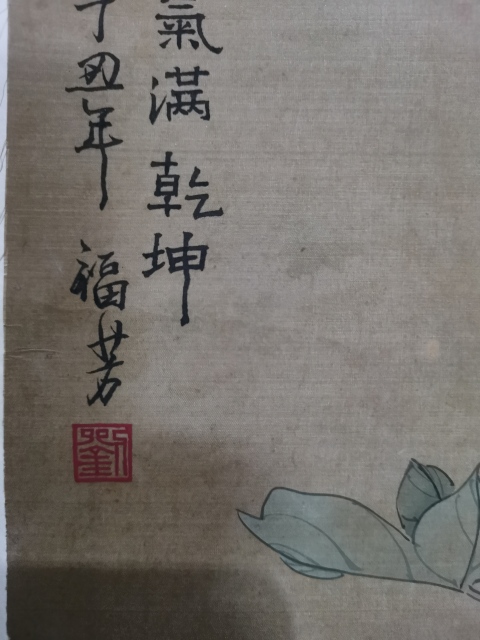 氣滿乾坤
丁丑年 福芳
劉